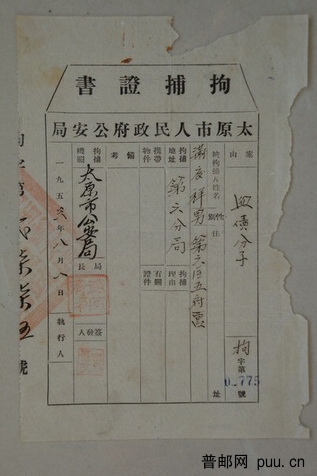 拘捕證書
太原市人民政府公安局
案由
血債分子
被拘捕人姓名
性別
住址
男
第六區五府營
拘捕地址
第六分局
攜帶物件
備考
拘捕理由
有關證件
拘捕機關
太原市公安局
局長
簽發人
執行人
一九五 年八月八日
拘字第
0.775
號
字第
柒柒五
號
普邮网 puu.cn